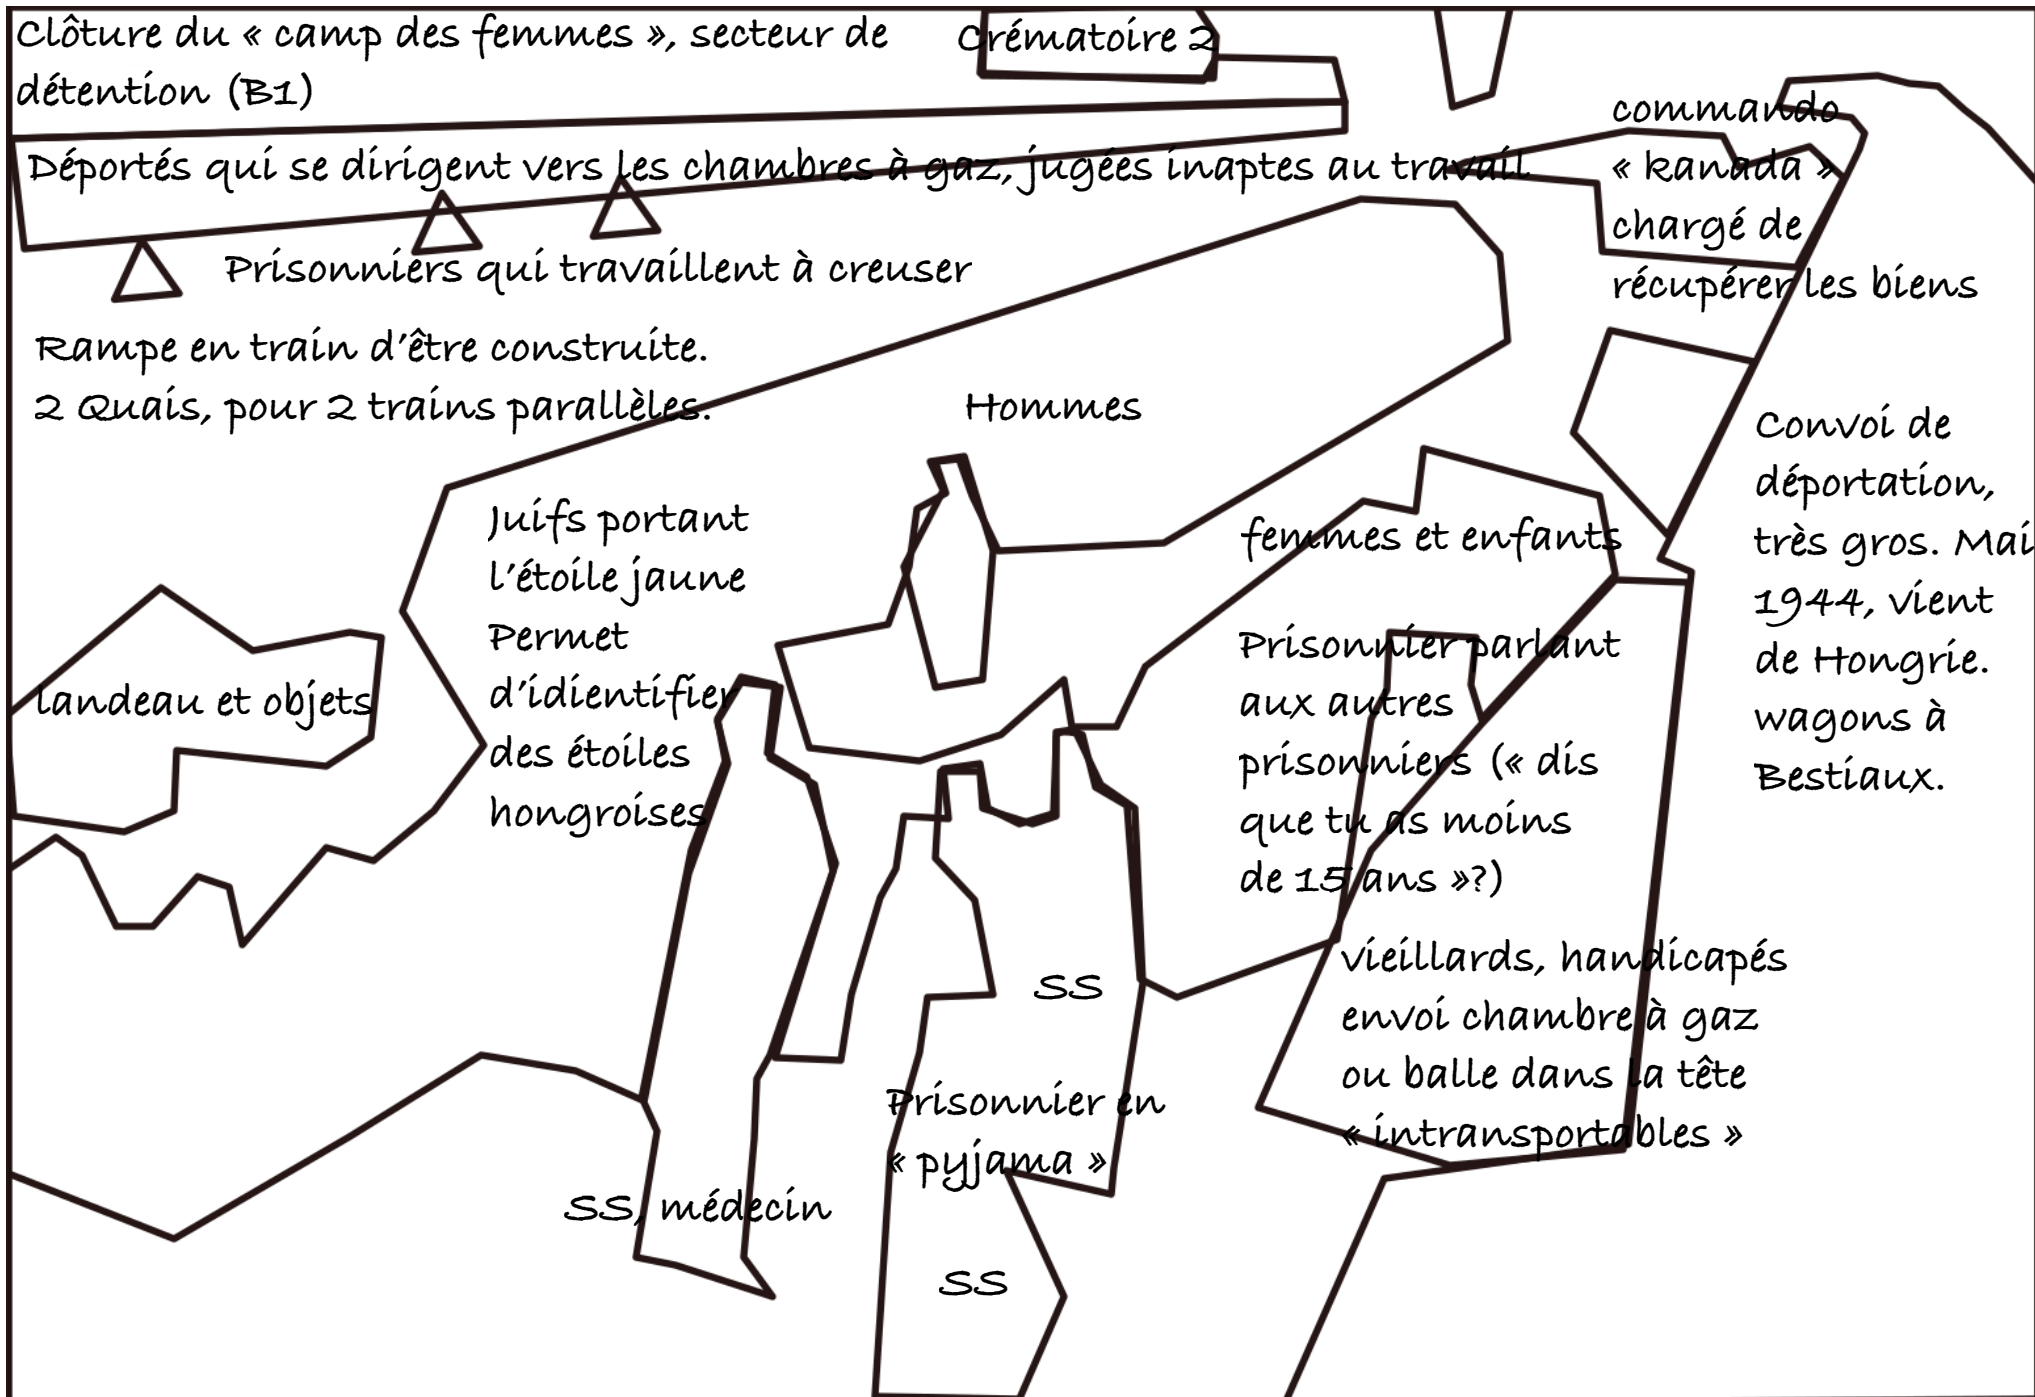 Clôture du « camp des femmes », secteur de
détention (B1)
Crématoire 2
commando
« kanada »
chargé de
récupérer les biens
Déportés qui se dirigent vers les chambres à gaz, jugées inaptes au travail
Prisonniers qui travaillent à creuser
Rampe en train d'être construite.
2 Quais, pour 2 trains parallèles.
Hommes
Convoi de
déportation,
très gros. Mai
1944, vient
de Hongrie.
wagons à
Bestiaux.
Juifs portant
l'étoile jaune
Permet
d'idientifier
des étoiles
hongroises
femmes et enfants
landeau et objets
Prisonnier parlant
aux autres
prisonniers (« dis
que tu as moins
de 15 ans »?)
vieillards, handicapés
envoi chambre à gaz
ou balle dans la tête
« intransportables »
SS
Prisonnier en
« pyjama »
SS, médecin
SS